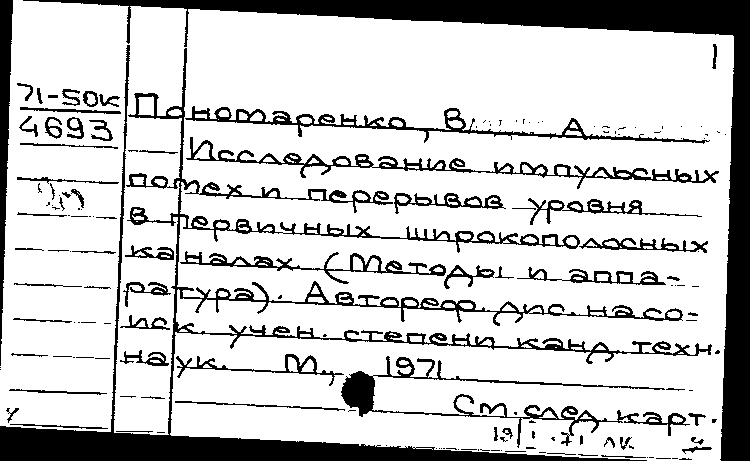 1
71-50к
4693
Пономаренко, В А
Исследование импульсных
помех и перерывов уровня
в первичных широкополосных
каналах. (Методы и аппа-
ратура). Автореф. дис. на со-
иск. учен. степени канд. техн.
наук. М., 1971.
См. след. карт.
19/I-71